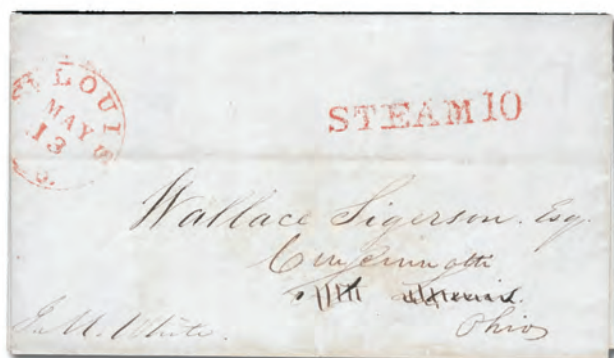 LOUIS
MAY
13
STEAM 10
Wallace Sigerson. Esq
Cincinnatti
Ohio
J. M. White.